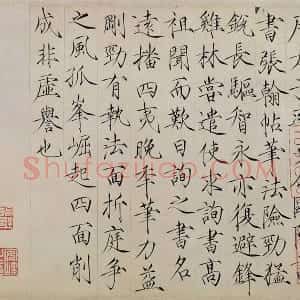 書張翰帖筆法險勁猛
銳長驅智永亦復避鋒
雞林嘗遣使求詢書高
祖聞而歎曰詢之書名
遠播四夷晚年筆力益
剛勁有執法面折庭爭
之風孤峯崛起四面削
成非虛譽也